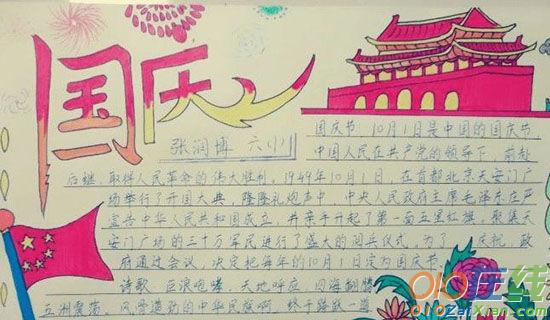 国庆
张润博 六(1)
国庆节,10月1日是中国的国庆节,
中国人民在共产党的领导下,前赴
后继,取得人民革命的伟大胜利,1949年10月1日,在首都北京天安门广
场举行了开国大典,隆隆礼炮声中,中央人民政府主席毛泽东庄严
宣告中华人民共和国成立,并亲手升起了第一面五星红旗,聚集天
安门广场的三十万军民进行了盛大的阅兵仪式,为了 庆祝,政
府通过会议,决定把每年的10月1日定为国庆节。
诗歌,巨浪咆哮,天地呼应,四海翻腾
五洲震荡,风雷激励的中华民族啊,终于
在线
ZaiXian.com